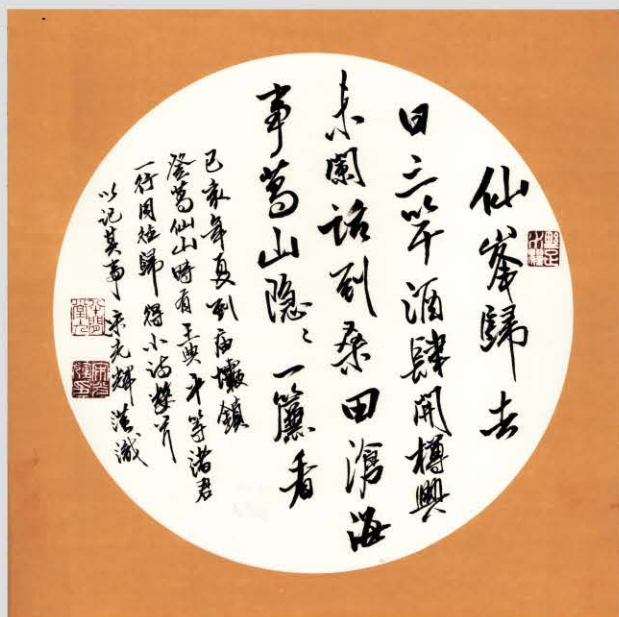 仙峯歸去
日三竿酒肆開樽興
未闌話到桑田滄海
事葛山隐〻一簾看
己亥年夏到庙壩鎮
登葛仙山時有王典才等诸君
一行同往歸得小诗幾首
以记其事宗光輝並識